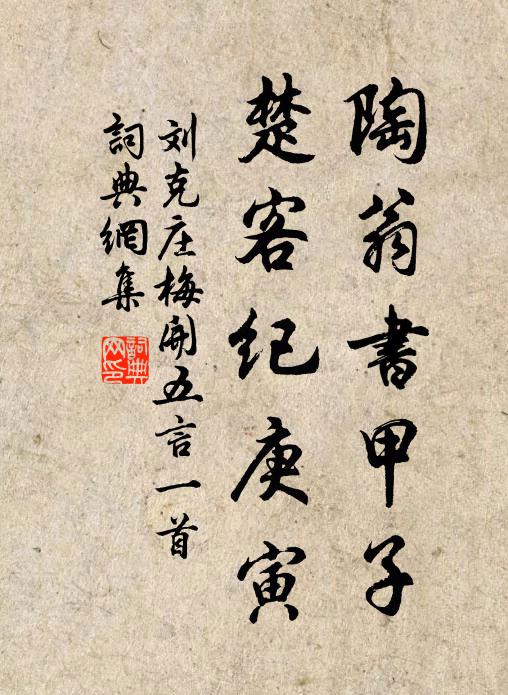 陶翁書甲子
楚客纪庚寅
刘克庄梅開五言一首
詞典網集
詞典网印